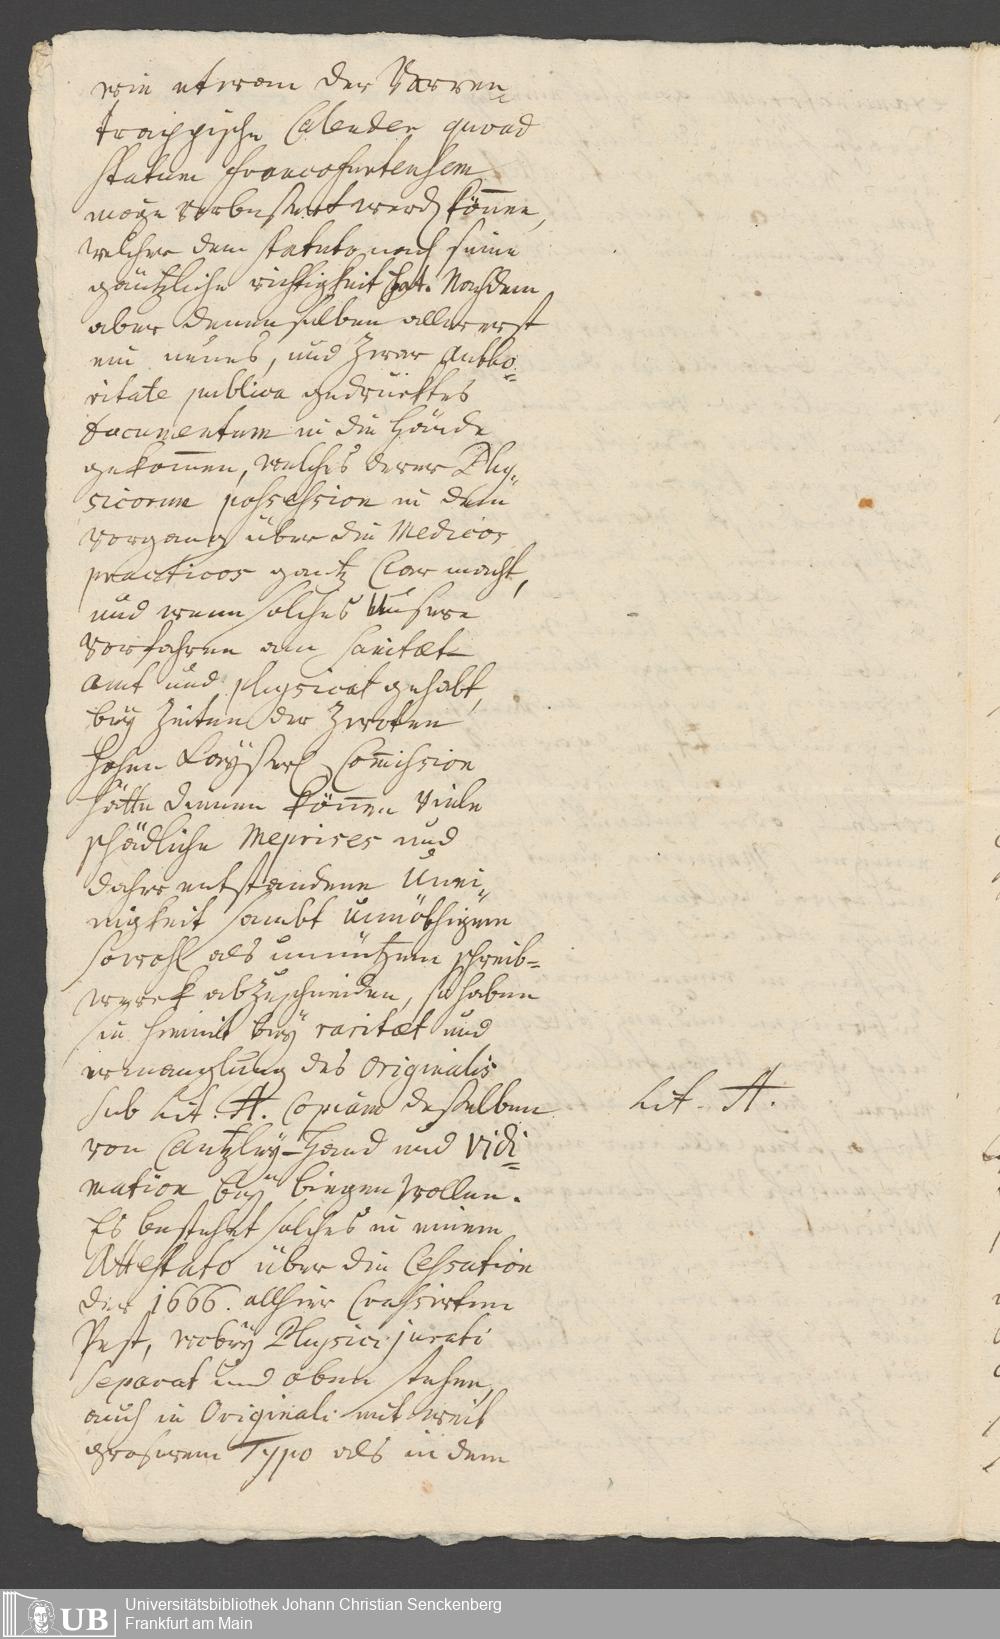 wie etwan der Varren-
trappische Calender quoad
statum francofurtensem
möge verbeßert werdē können,
welcher dem statuto nach seine
gäntzliche richtigkeit hat. Nachdem
aber denenselben allererst
ein neues, und zwar Autho=
ritate publica gedrucktes
documentum in die Hände
gekom̄en, welches derer Phy-
sicorum possession in dem
vorgang über die Medicos
practicos gantz Clar macht,
und wenn solches Unsere
Vorfahren am Sanitæt-
amt und physicat gehabt,
bey Zeiten der Zwoten
Hohen Kayserl Com̄ission
hätte dienen kön̄en viele
schädliche Meprises und
daher entstandene Unei-
nigkeit sambt unnöthigem
sowohl als unnützem schreib=
werck abzuschneiden, so haben
sie hiemit bey raritæt und
ermanglung des Originalis
sub Lit. A. Copiam deßelben
von Cantzley-Hand und Vidi=
mation bey biegen wollen.
Es bestehet solches in einem
Attestato über die Cessation
der 1666. allhier Crassirten
Pest, wobey Physici jurati
separat und oben stehen,
auch in Originali mit weit
grosserem Typo als in dem
Lit. A.
UB
Universitätsbibliothek Johann Christian Senckenberg
Frankfurt am Main